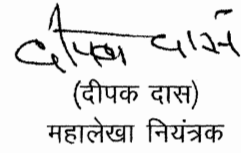 दीपक दास
(दीपक दास)
महालेखा नियंत्रक